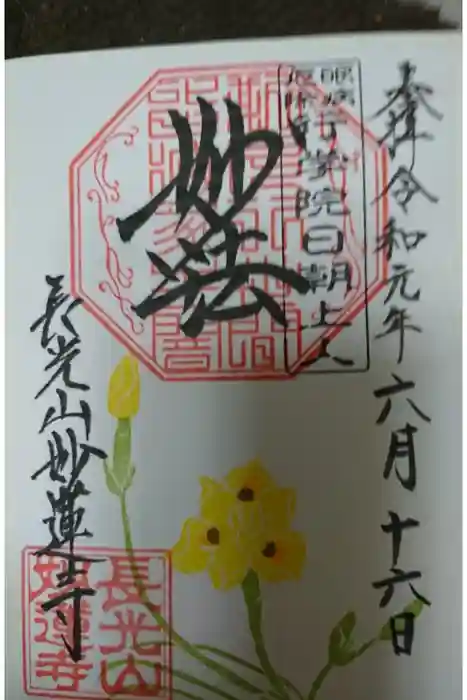 奉拝 令和元年六月十六日
眼病
厄除
行学院日朝上人
妙法
長光山妙蓮寺
長光山
妙蓮寺